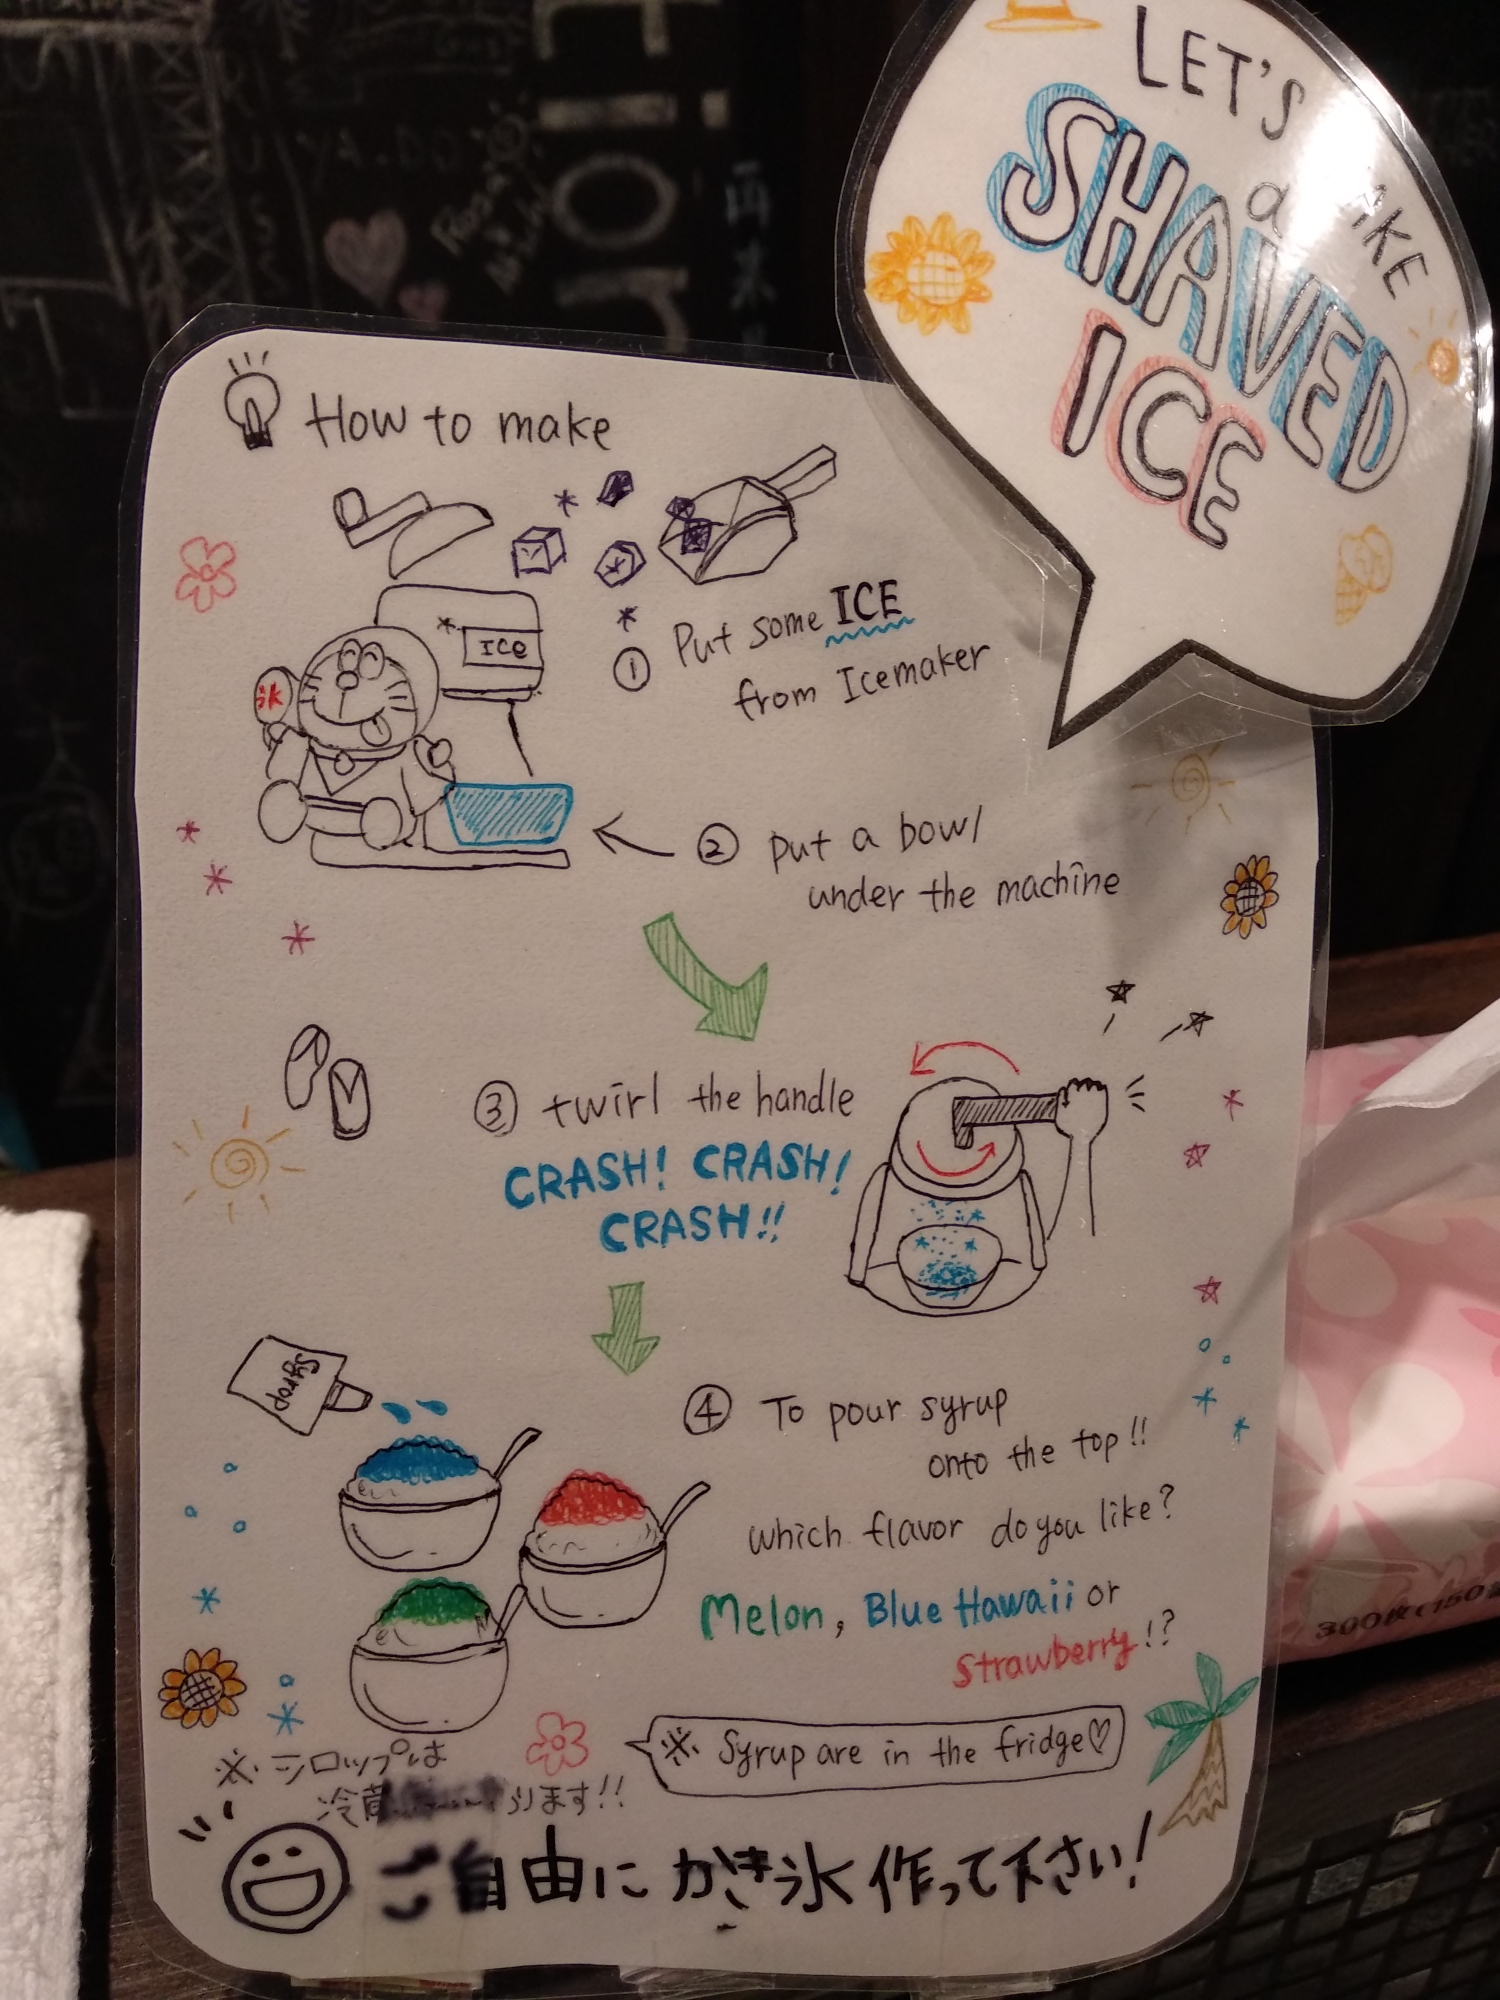 LET'S
SHAVED
ICE
How to make
ICe
氷
① Put some ICE
from Icemaker
② put a bowl
under the machine
③ twirl the handle
CRASH! CRASH!
CRASH!!
Syrop
④ To pour syrup
onto the top!!
which flavor do you like?
Melon, Blue Hawaii or
Strawberry!?
※ Syrup are in the fridge♡
※ シロップは
冷蔵 ります!!
ご自由に かき氷 作って下さい!
300枚(150